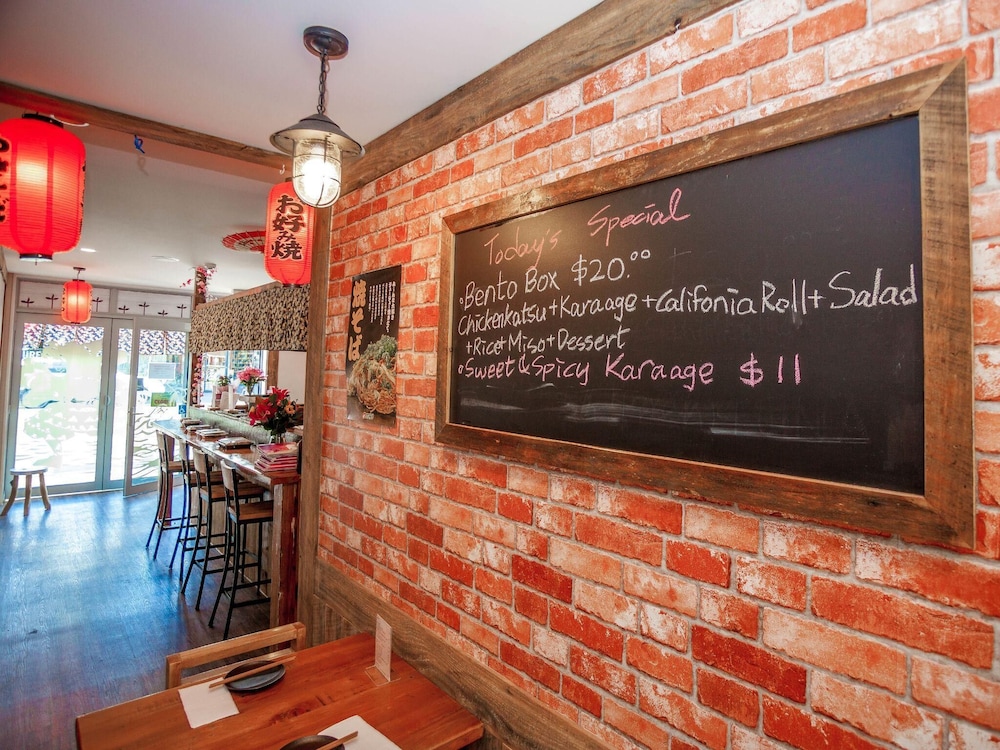 Today's Special
Bento Box $20.00
Chickenkatsu+Karaage+Califonia Roll+Salad
+Rice+Miso+Dessert
Sweet & Spicy Karaage $11
お好み焼
焼そば